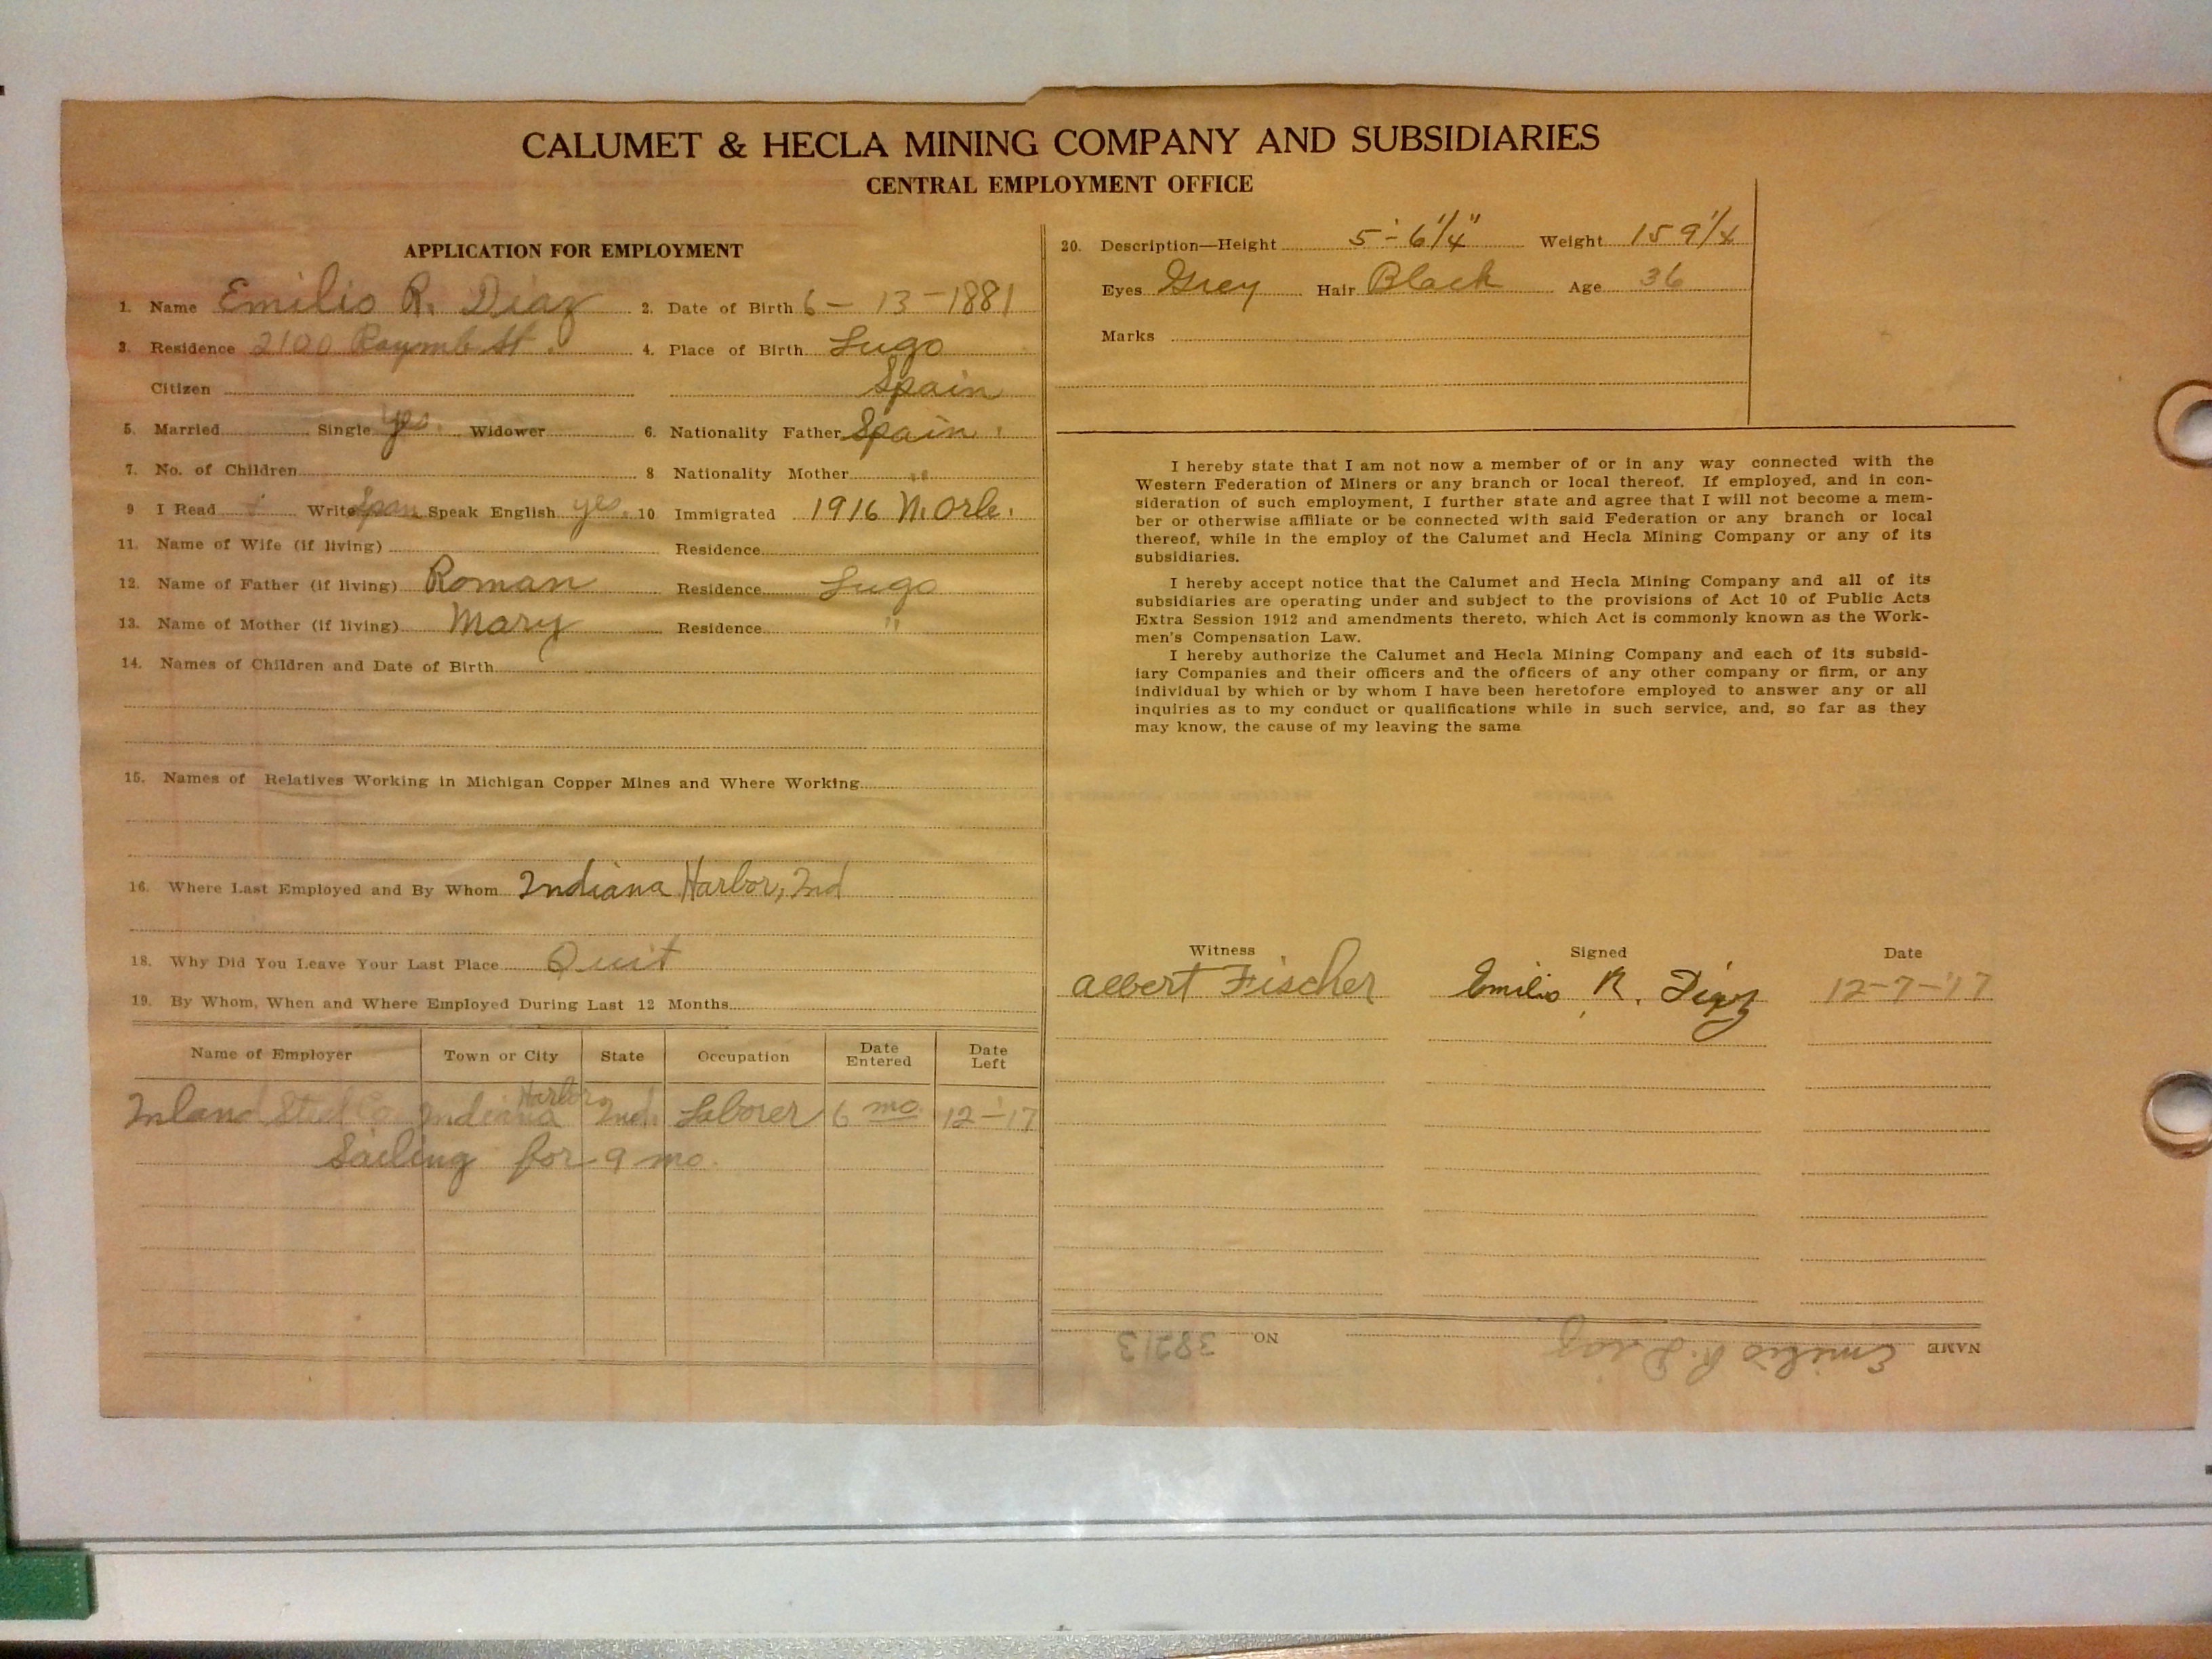 CALUMET & HECLA MINING COMPANY AND SUBSIDIARIES
CENTRAL EMPLOYMENT OFFICE
APPLICATION FOR EMPLOYMENT
1. Name Emilio R. Diaz 2. Date of Birth 6 - 13 - 1881
3. Residence 2100 Raymb St. 4. Place of Birth Lugo
Citizen Spain
5. Married Single yes. Widower 6. Nationality Father Spain.
7. No. of Children 8 Nationality Mother "
9 I Read Write Span Speak English yes. 10 Immigrated 1916 N. Orle.
11. Name of Wife (if living) Residence
12. Name of Father (if living) Roman Residence Lugo
13. Name of Mother (if living) Mary Residence "
14. Names of Children and Date of Birth
15. Names of Relatives Working in Michigan Copper Mines and Where Working
16. Where Last Employed and By Whom Indiana Harbor, Ind
18. Why Did You Leave Your Last Place Quit
19. By Whom, When and Where Employed During Last 12 Months
Name of Employer Town or City State Occupation Date Entered Date Left
Inland Steel Co Indiana Harbor Ind. Laborer 6 mo. 12-'17
Sailing for 9 mo.
20. Description—Height 5'-6 1/4" Weight 159 1/4
Eyes Grey Hair Black Age 36
Marks
I hereby state that I am not now a member of or in any way connected with the
Western Federation of Miners or any branch or local thereof. If employed, and in con-
sideration of such employment, I further state and agree that I will not become a mem-
ber or otherwise affiliate or be connected with said Federation or any branch or local
thereof, while in the employ of the Calumet and Hecla Mining Company or any of its
subsidiaries.
I hereby accept notice that the Calumet and Hecla Mining Company and all of its
subsidiaries are operating under and subject to the provisions of Act 10 of Public Acts
Extra Session 1912 and amendments thereto, which Act is commonly known as the Work-
men's Compensation Law.
I hereby authorize the Calumet and Hecla Mining Company and each of its subsid-
iary Companies and their officers and the officers of any other company or firm, or any
individual by which or by whom I have been heretofore employed to answer any or all
inquiries as to my conduct or qualifications while in such service, and, so far as they
may know, the cause of my leaving the same
Witness Signed Date
Albert Fischer Emilio R. Diaz 12-7-'17
NAME Emilio R. Diaz NO. 38213